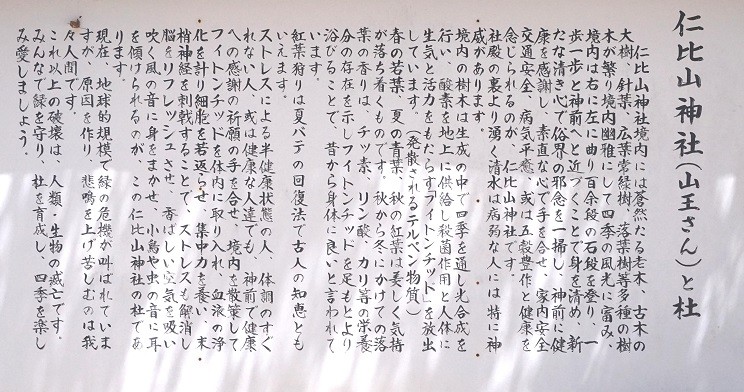 仁比山神社(山王さん)と杜
仁比山神社境内には蒼然たる老木、古木の
大樹、針葉、広葉常緑樹、落葉樹等多種の樹
木が繁り境内幽雅にして四季の風光に富み、
境内は右に左に曲り百余段の石段を登り、一
歩一歩と神前へと近づくことで身を清め、新
たな清き心で俗界の邪念を一掃し、神前に健
康を感謝し、素直な心で手を合せ、家内安全
交通安全、病気平癒、或は五穀豊作と健康を
念じられるのが、仁比山神社です。
社殿の裏より湧く清水は病弱な人には特に神
威があります。
境内の樹木は生成の中で四季を通し光合成を
行い、酸素を地上に供給し殺菌作用と人体に
生気と活力をもたらすフイトンチッド」を放出
しています。(発散されるテルペン物質)
春の若葉、夏の青葉、秋の紅葉は美しく気持
が落ち着くものです。秋から冬にかけての落
葉の香りは、チッ素、リン酸、カリ等の栄養
分の存在を示しフイトンチッドを足もとより
浴びることで、昔から身体に良いと言われて
います。
紅葉狩りは夏バテの回復法で古人の知恵とも
いえます。
ストレスによる半健康状態の人、体調のすぐ
れない人、或は健康な人達でも、神前で健康
への感謝の祈願の手を合せ、境内を散策して
フイトンチッドを体内に取り入れ、血液の浄
化を計り細胞を若返らせ、集中力を養い、末
梢神経を刺戟することで、ストレスも解消し
脳をリフレッシュさせ、香ばしい空気を吸い
吹く風の音に身をまかせ、小鳥や虫の音に耳
を傾けられるのが、この仁比山神社の杜であ
ります。
現在、地球的規模で緑の危機が叫ばれていま
すが、原因を作り、悲鳴を上げ苦しむのは我
々人間です。
これ以上の破壊は、人類・生物の滅亡です。
みんなで緑を守り、杜を育成し、四季を楽し
み愛しましょう。